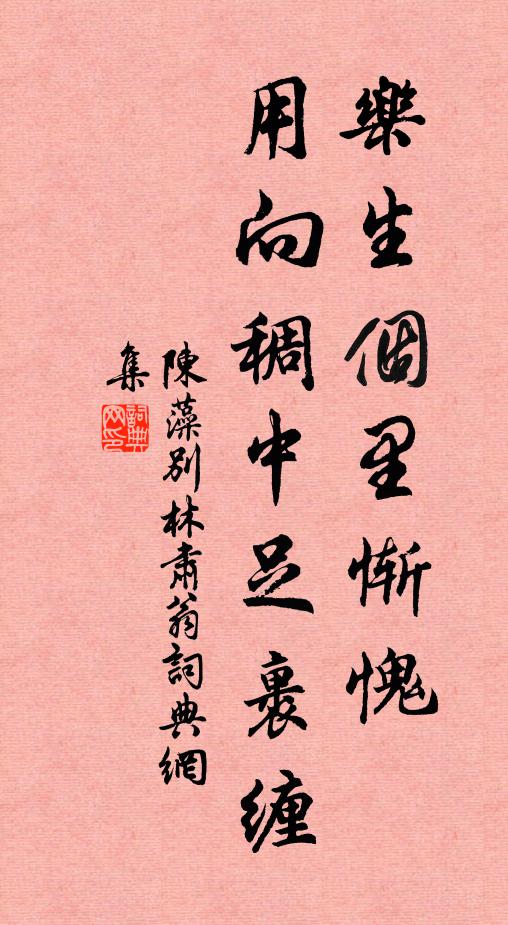 樂生個里慚愧
用向稠中足裹纏
陳藻別林肅翁詞典網
集
詞典網印